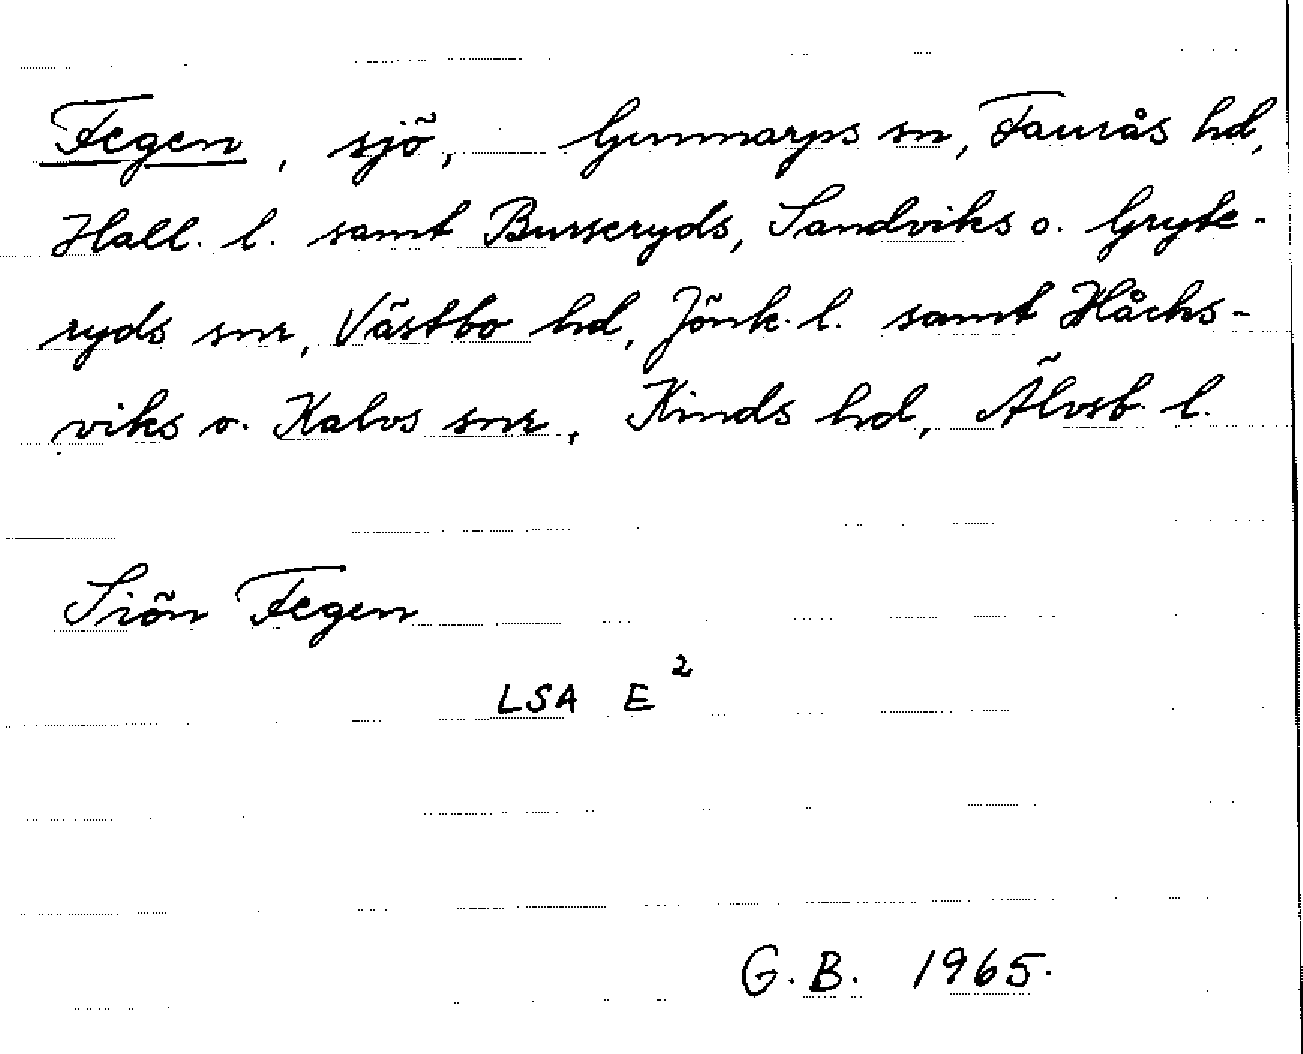 Fegen, sjö, Gunnarps sn, Faurås hd,
Hall. l. samt Burseryds, Sandviks o. Gryte-
ryds snr, Västbo hd, Jönk. l. samt Håcks-
viks o. Kalvs snr, Kinds hd, Älvsb. l.
Siön Fegen
LSA E²
G.B. 1965.